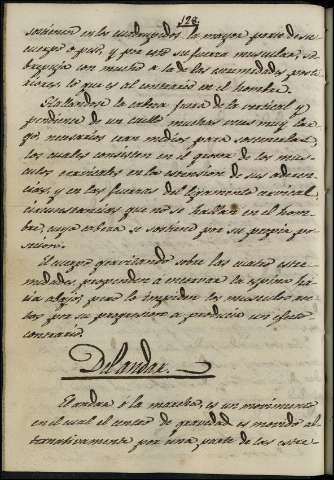 128.
sostienen en los cuadrupedos la mayor parte de su
cuerpo o peso, y por esto su fuerza muscular, so-
brepuja con mucho a la de las extremidades poste-
riores, lo que es al contrario en el hombre.
Hallandose la cabeza fuera de la vertical y
pendiente de un cuello muchas veces muy lar-
go, necesarios eran medios para sostenerla,
los cuales consisten en el grosor de los mus-
culos cervicales, en la extension de sus adheren-
cias, y en las fuerzas del ligamento cervical,
circunstancias que no se hallan en el hom-
bre, cuya cabeza se sostiene por su propia pe-
El cuerpo gravitando sobre las cuatro estre-
midades, propenden a encorvar la espina ha-
cia abajo, pero lo impiden los musculos
los por su propension a producir un efecto
contrario.
Del andar.
El andar ó la marcha, es un movimiento
en el cual el centro de gravedad es movido al-
ternativamente por una parte de las estre-